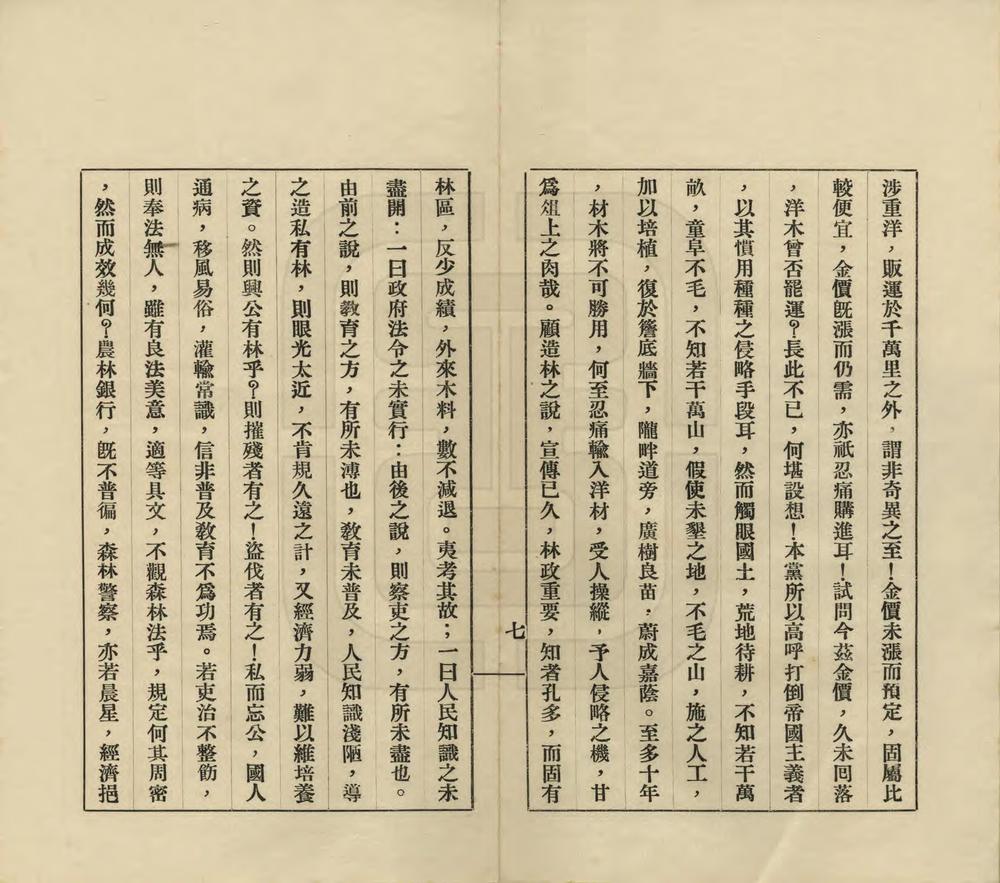 涉重洋，販運於千萬里之外，謂非奇異之至！金價未漲而預定，固屬比
較便宜，金價旣漲而仍需，亦祇忍痛購進耳！試問今茲金價，久未回落
，洋木曾否罷運？長此不已，何堪設想！本黨所以高呼打倒帝國主義者
，以其慣用種種之侵略手段耳，然而觸眼國土，荒地待耕，不知若干萬
畝，童阜不毛，不知若干萬山，假使未墾之地，不毛之山，施之人工，
加以培植，復於簷底牆下，隴畔道旁，廣樹良苗，蔚成嘉蔭。至多十年
，材木將不可勝用，何至忍痛輸入洋材，受人操縱，予人侵略之機，甘
爲俎上之肉哉。顧造林之說，宣傳已久，林政重要，知者孔多，而固有
七
林區，反少成績，外來木料，數不減退。夷考其故；一曰人民知識之未
盡開：一曰政府法令之未實行：由後之說，則察吏之方，有所未盡也。
由前之說，則教育之方，有所未溥也，教育未普及，人民知識淺陋，導
之造私有林，則眼光太近，不肯規久遠之計，又經濟力弱，難以維培養
之資。然則興公有林乎？則摧殘者有之！盜伐者有之！私而忘公，國人
通病，移風易俗，灌輸常識，信非普及敎育不爲功焉。若吏治不整飭，
則奉法無人，雖有良法美意，適等具文，不觀森林法乎，規定何其周密
，然而成效幾何？農林銀行，旣不普徧，森林警察，亦若晨星，經濟挹